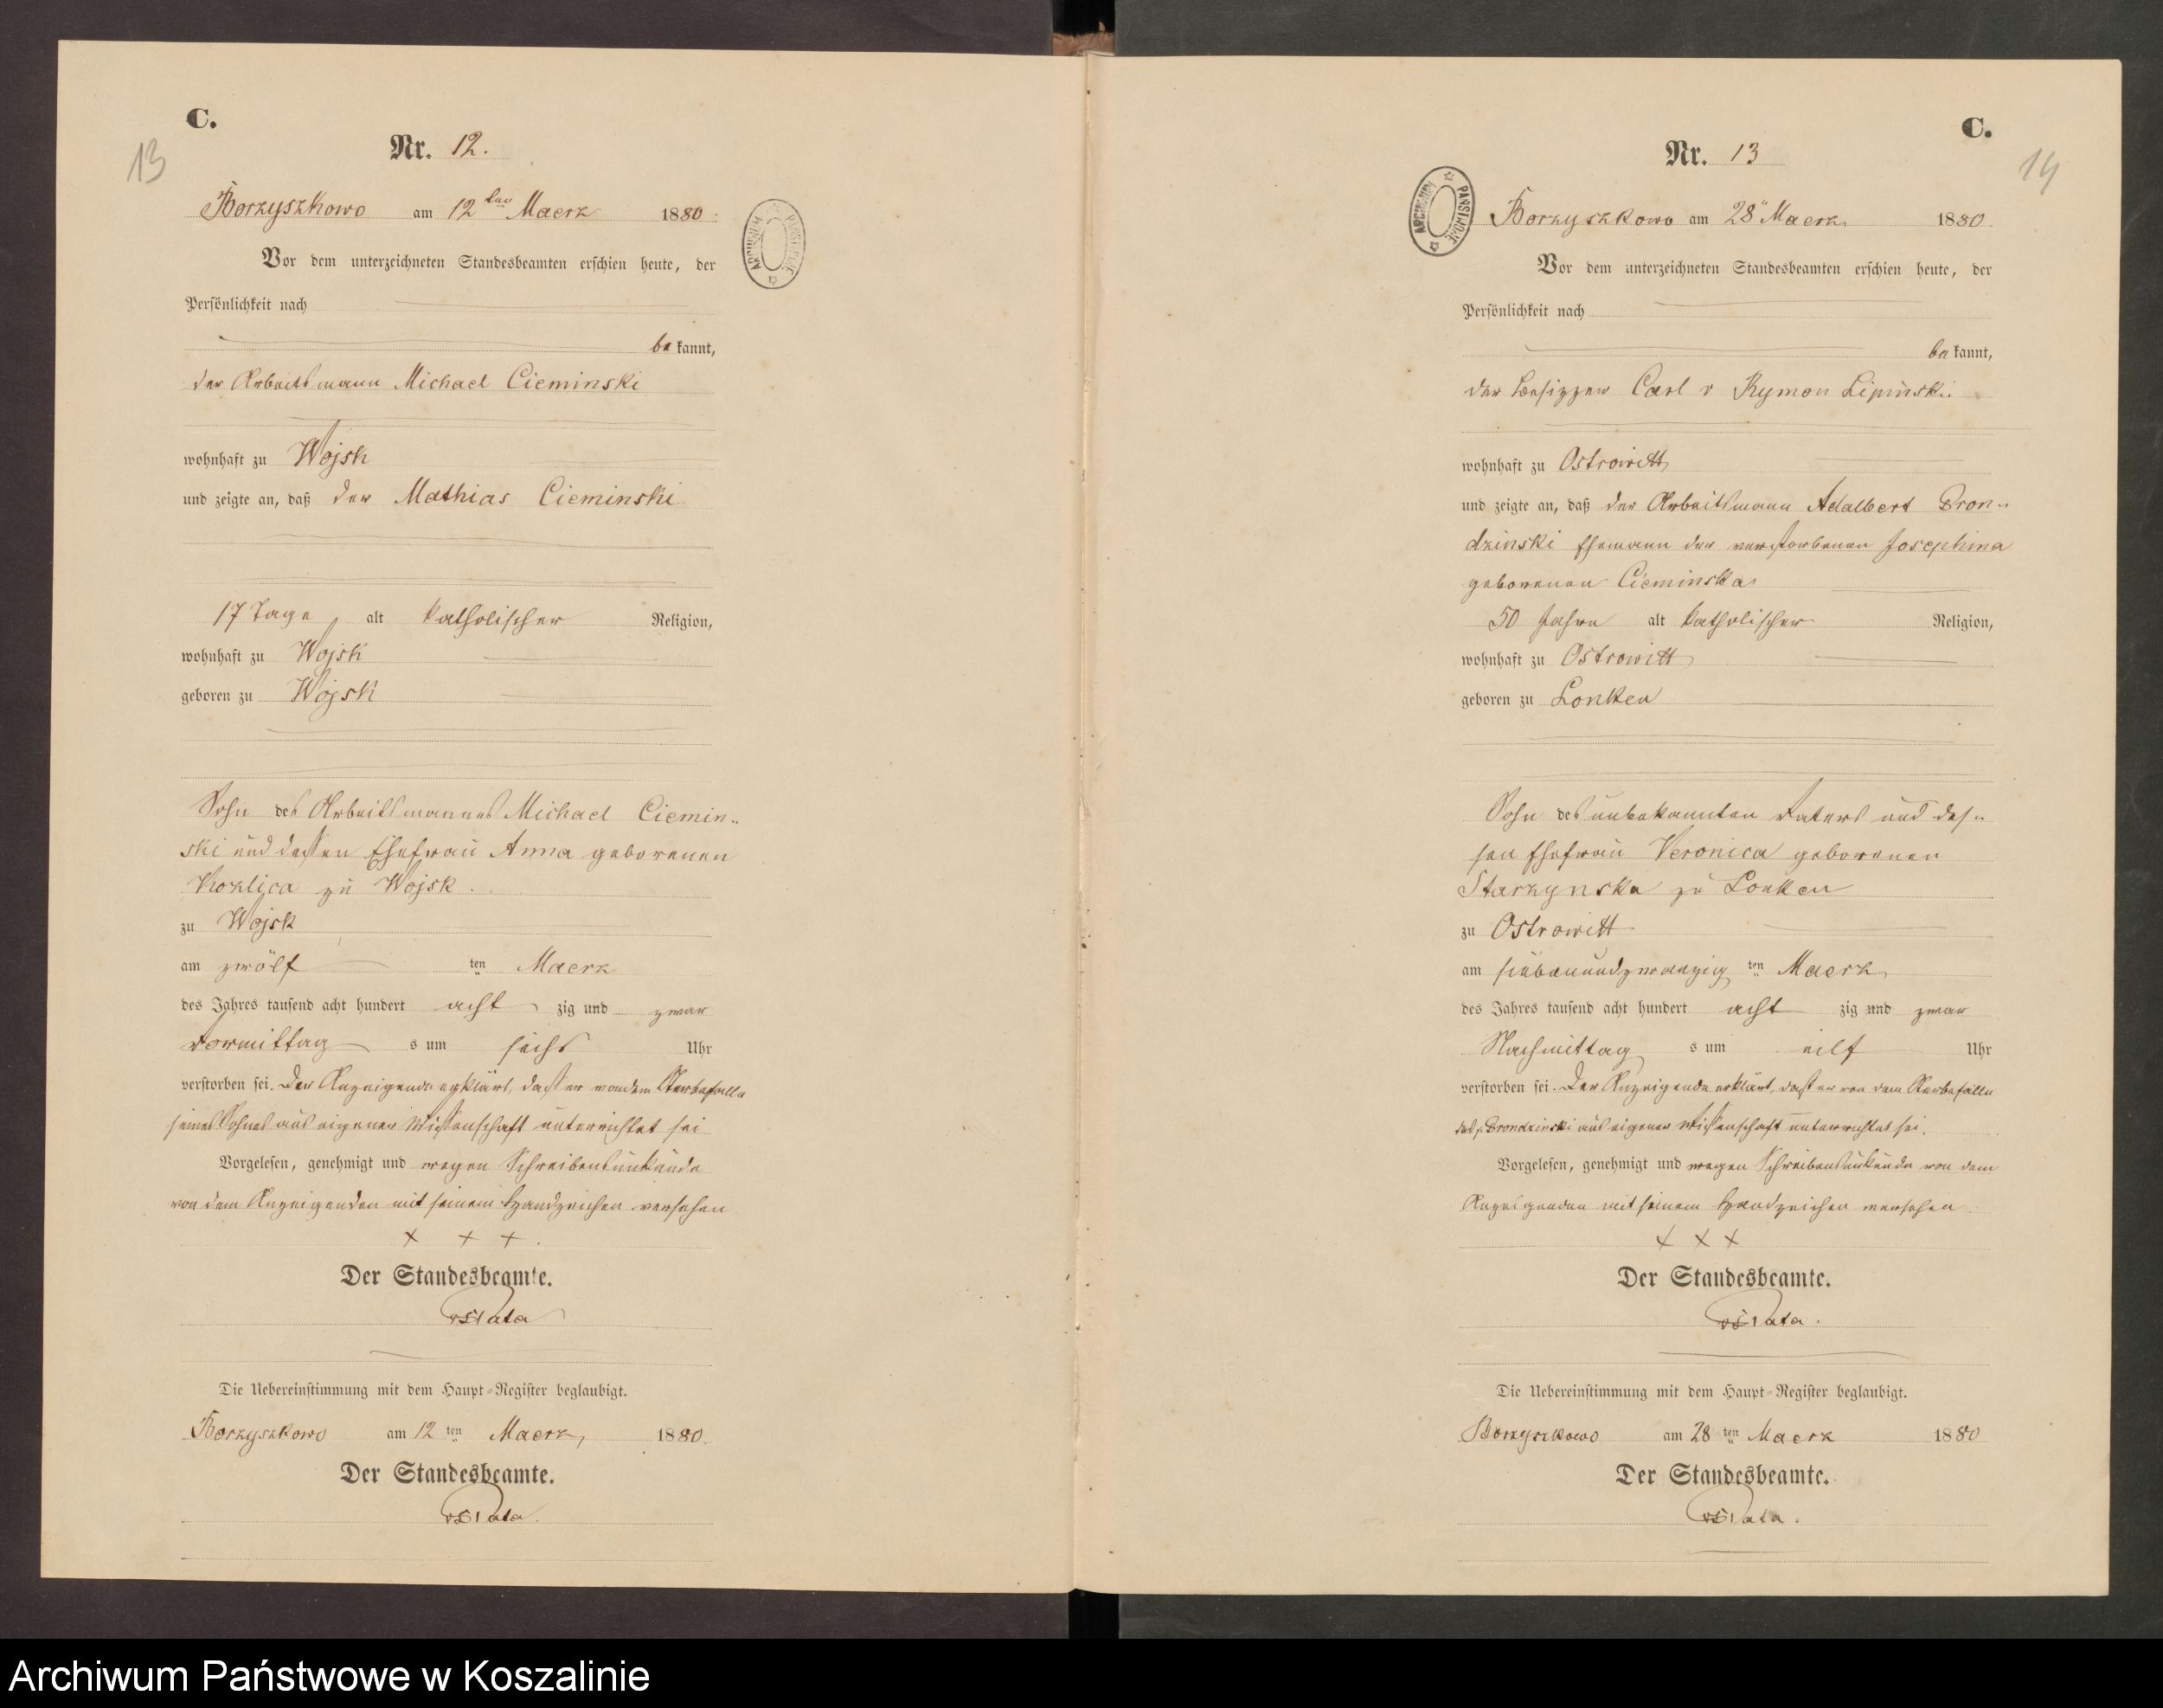 C.
13
Nr. 12.
Borzyszkowo am 12ten Maerz 1880.
ARCHIWUM PAŃSTWOWE
Vor dem unterzeichneten Standesbeamten erschien heute, der
Persönlichkeit nach
bekannt,
der Arbeitsmann Michael Cieminski
wohnhaft zu Wojsk
und zeigte an, daß der Mathias Cieminski
17 Tage alt katholischer Religion,
wohnhaft zu Wojsk
geboren zu Wojsk
Sohn des Arbeitsmannes Michael Ciemin-
ski und dessen Ehefrau Anna geborenen
zu Wojsk.
zu Wojsk
am zwölf ten Maerz
des Jahres tausend acht hundert acht zig und zwar
Vormittag s um sechs Uhr
verstorben sei. Der Anzeigende erklärt, dass er von dem Sterbefalle
seines Sohnes aus eigener Wissenschaft unterrichtet sei
Vorgelesen, genehmigt und wegen Schreibensunkunde
von dem Anzeigenden mit seinem Handzeichen versehen
+ + +.
Der Standesbeamte.
Die Uebereinstimmung mit dem Haupt-Register beglaubigt.
Borzyszkowo am 12 ten Maerz 1880.
Der Standesbeamte.
C.
14
Nr. 13
ARCHIWUM PAŃSTWOWE
Borzyszkowo am 28" Maerz 1880.
Vor dem unterzeichneten Standesbeamten erschien heute, der
Persönlichkeit nach
bekannt,
der Besitzer Carl v Rymon Lipinski
wohnhaft zu Ostrowitt
und zeigte an, daß der Arbeitsmann Adalbert Dron-
dzinski Ehemann der verstorbenen Josephina
geborenen Cieminska
50 Jahre alt katholischer Religion,
wohnhaft zu Ostrowitt
geboren zu Lonken
Sohn des unbekannten Vaters und des-
sen Ehefrau Veronica geborenen
Starzynska zu Lonken
zu Ostrowitt
am siebenundzwanzig ten Maerz
des Jahres tausend acht hundert acht zig und zwar
Nachmittag s um eilf Uhr
verstorben sei. Der Anzeigende erklärt, dass er von dem Sterbefalle
des p. Drondzinski aus eigener Wissenschaft unterrichtet sei.
Vorgelesen, genehmigt und wegen Schreibensunkunde von dem
Anzeigenden mit seinem Handzeichen versehen
+ + +
Der Standesbeamte.
Die Uebereinstimmung mit dem Haupt-Register beglaubigt.
Borzyszkowo am 28 ten Maerz 1880
Der Standesbeamte.
Archiwum Państwowe w Koszalinie